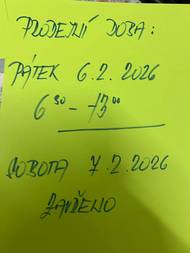 PRODEJNÍ DOBA:
PÁTEK 6.2.2026
6³⁰ - 13⁰⁰
SOBOTA 7.2.2026
ZAVŘENO